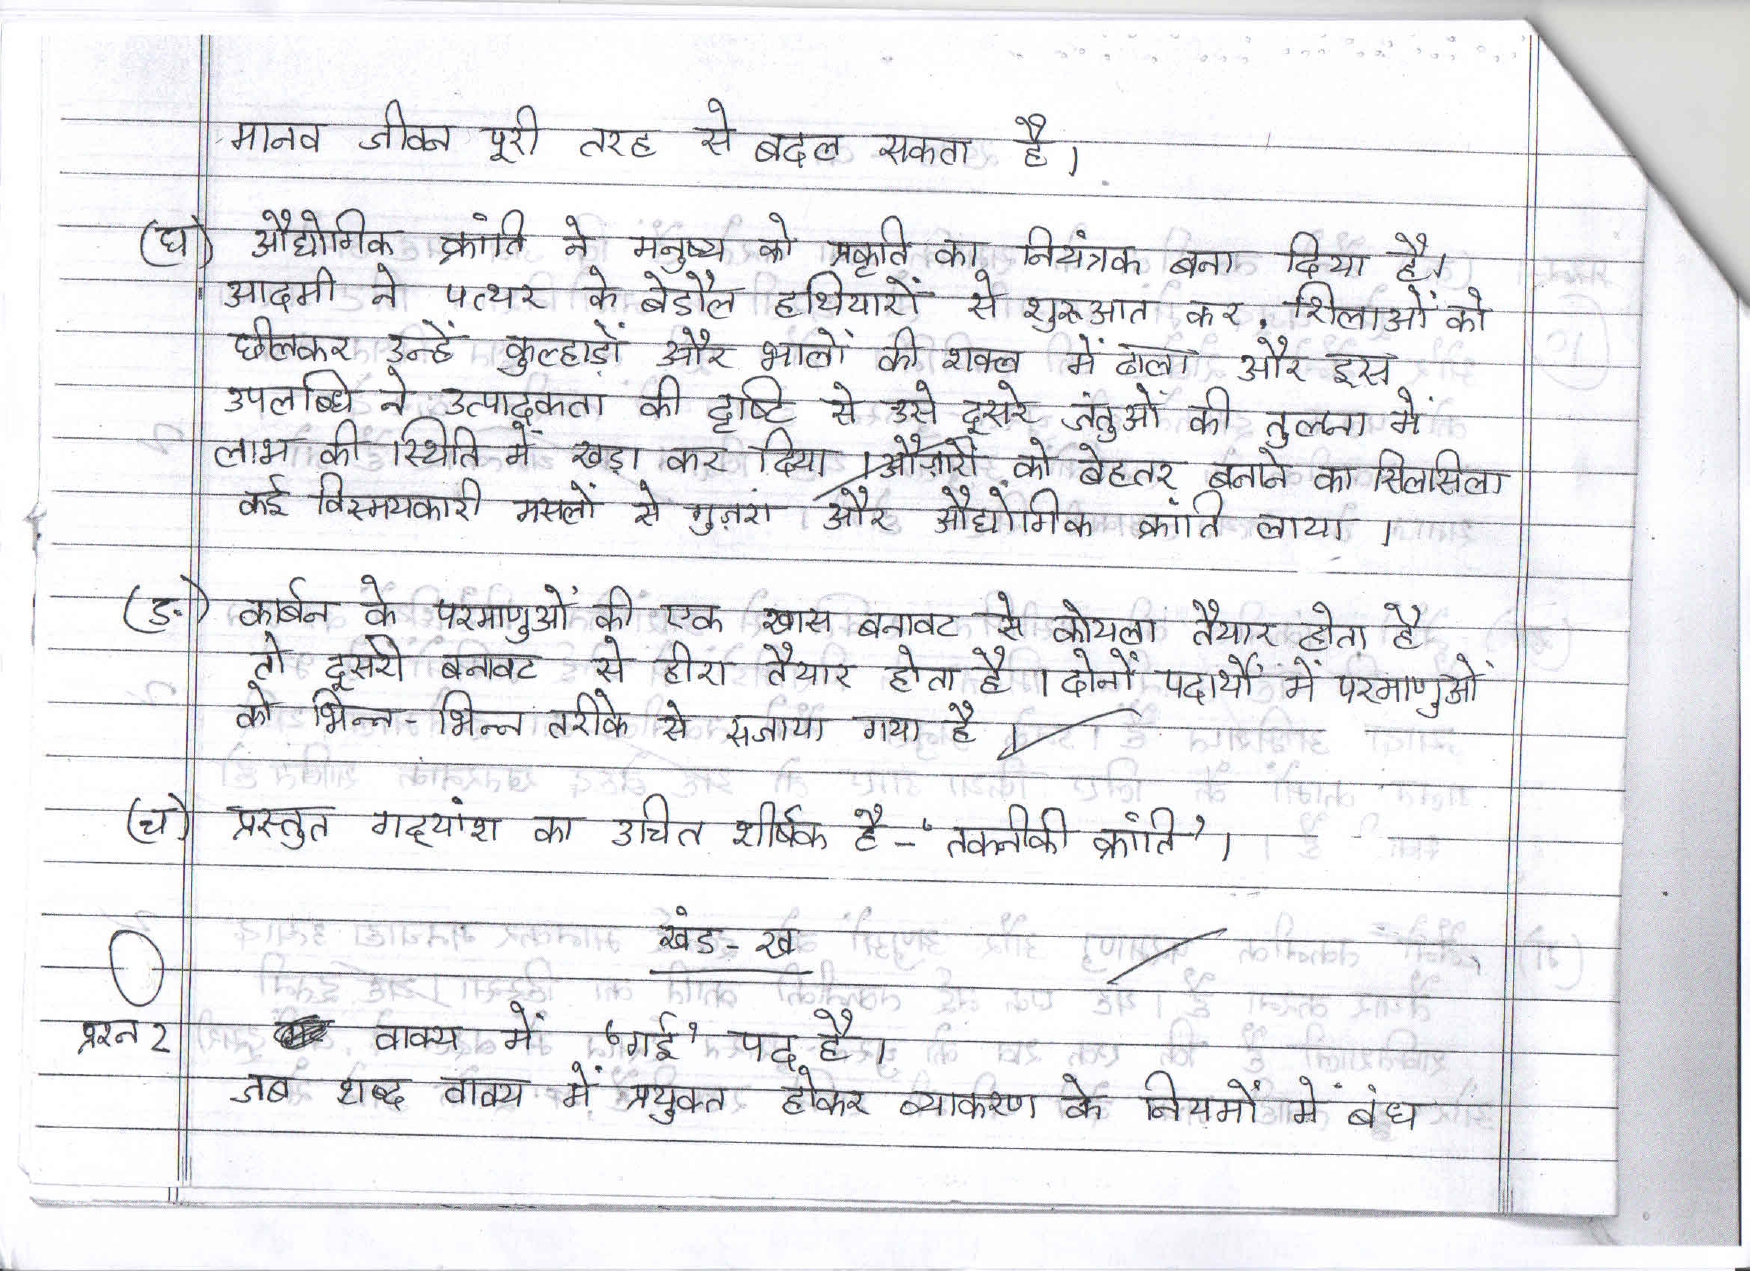 मानव जीवन पूरी तरह से बदल सकता है।
(घ) औद्योगिक क्रांति ने मनुष्य को प्रकृति का नियंत्रक बना दिया है।
आदमी ने पत्थर के बेडौल हथियारों से शुरूआत कर, शिलाओं को
छीलकर उन्हें कुल्हाड़ों और भालों की शक्ल में ढाला और इस
उपलब्धि ने उत्पादकता की दृष्टि से उसे दूसरे जंतुओं की तुलना में
लाभ की स्थिति में खड़ा कर दिया। औज़ारों को बेहतर बनाने का सिलसिला
कई विस्मयकारी मसलों से गुज़रा और औद्योगिक क्रांति लाया।
(ङ) कार्बन के परमाणुओं की एक खास बनावट से कोयला तैयार होता है
तो दूसरी बनावट से हीरा तैयार होता है। दोनों पदार्थों में परमाणुओं
को भिन्न-भिन्न तरीके से सजाया गया है।
(च) प्रस्तुत गद्यांश का उचित शीर्षक है - 'तकनीकी क्रांति'।
खंड - ख
प्रश्न 2 वाक्य में 'गई' पद है।
जब शब्द वाक्य में प्रयुक्त होकर व्याकरण के नियमों में बंध